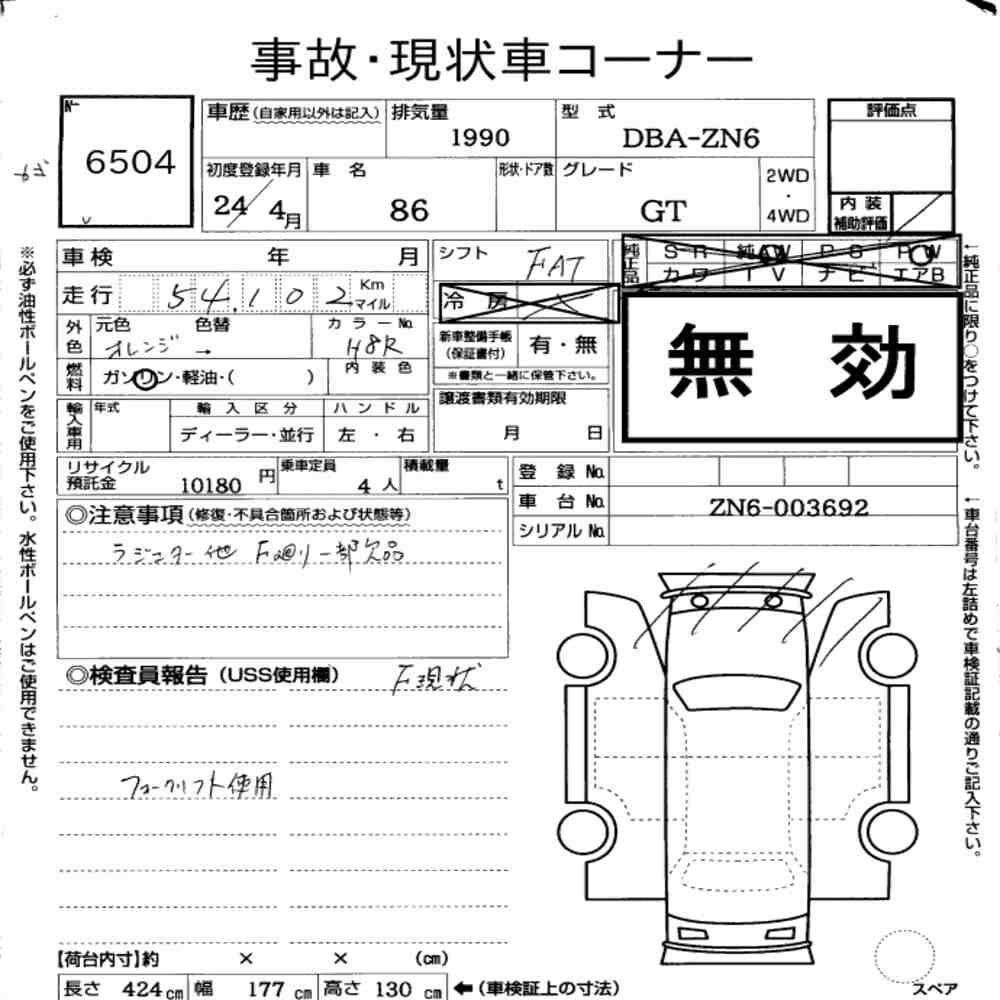 事故・現状車コーナー
№
6504
車歴(自家用以外は記入)
排気量
1990
型 式
DBA-ZN6
評価点
初度登録年月
24/4月
車 名
86
形状・ドア数
グレード
GT
2WD
・
4WD
内 装
補助評価
※必ず油性ボールペンをご使用下さい。水性ボールペンはご使用できません。
車検 年 月
走行 54,102 Km
マイル
外色
元色 色替
オレンジ →
カラーNo.
H8R
燃料
ガソリン・軽油・( )
内 装 色
輸入車用
年式
輸 入 区 分
ディーラー・並行
ハ ン ド ル
左 ・ 右
シフト
FAT
冷 房
新車整備手帳
(保証書付)
有・無
※書類と一緒に保管下さい。
譲渡書類有効期限
月 日
純正品
SR 純AW PS PW
カワ TV ナビ エアB
無 効
←純正品に限り○をつけて下さい。
リサイクル
預託金
10180 円
乗車定員
4 人
積載量
t
登 録 No.
車 台 No.
ZN6-003692
シリアル No.
←車台番号は左詰めで車検証記載の通りご記入下さい。
◎注意事項(修復・不具合箇所および状態等)
ラジエター他 F廻り一部欠品
◎検査員報告(USS使用欄)
F現状
フォークリフト使用
【荷台内寸】約 × × (cm)
長さ 424cm 幅 177cm 高さ 130cm ←(車検証上の寸法)
スペア